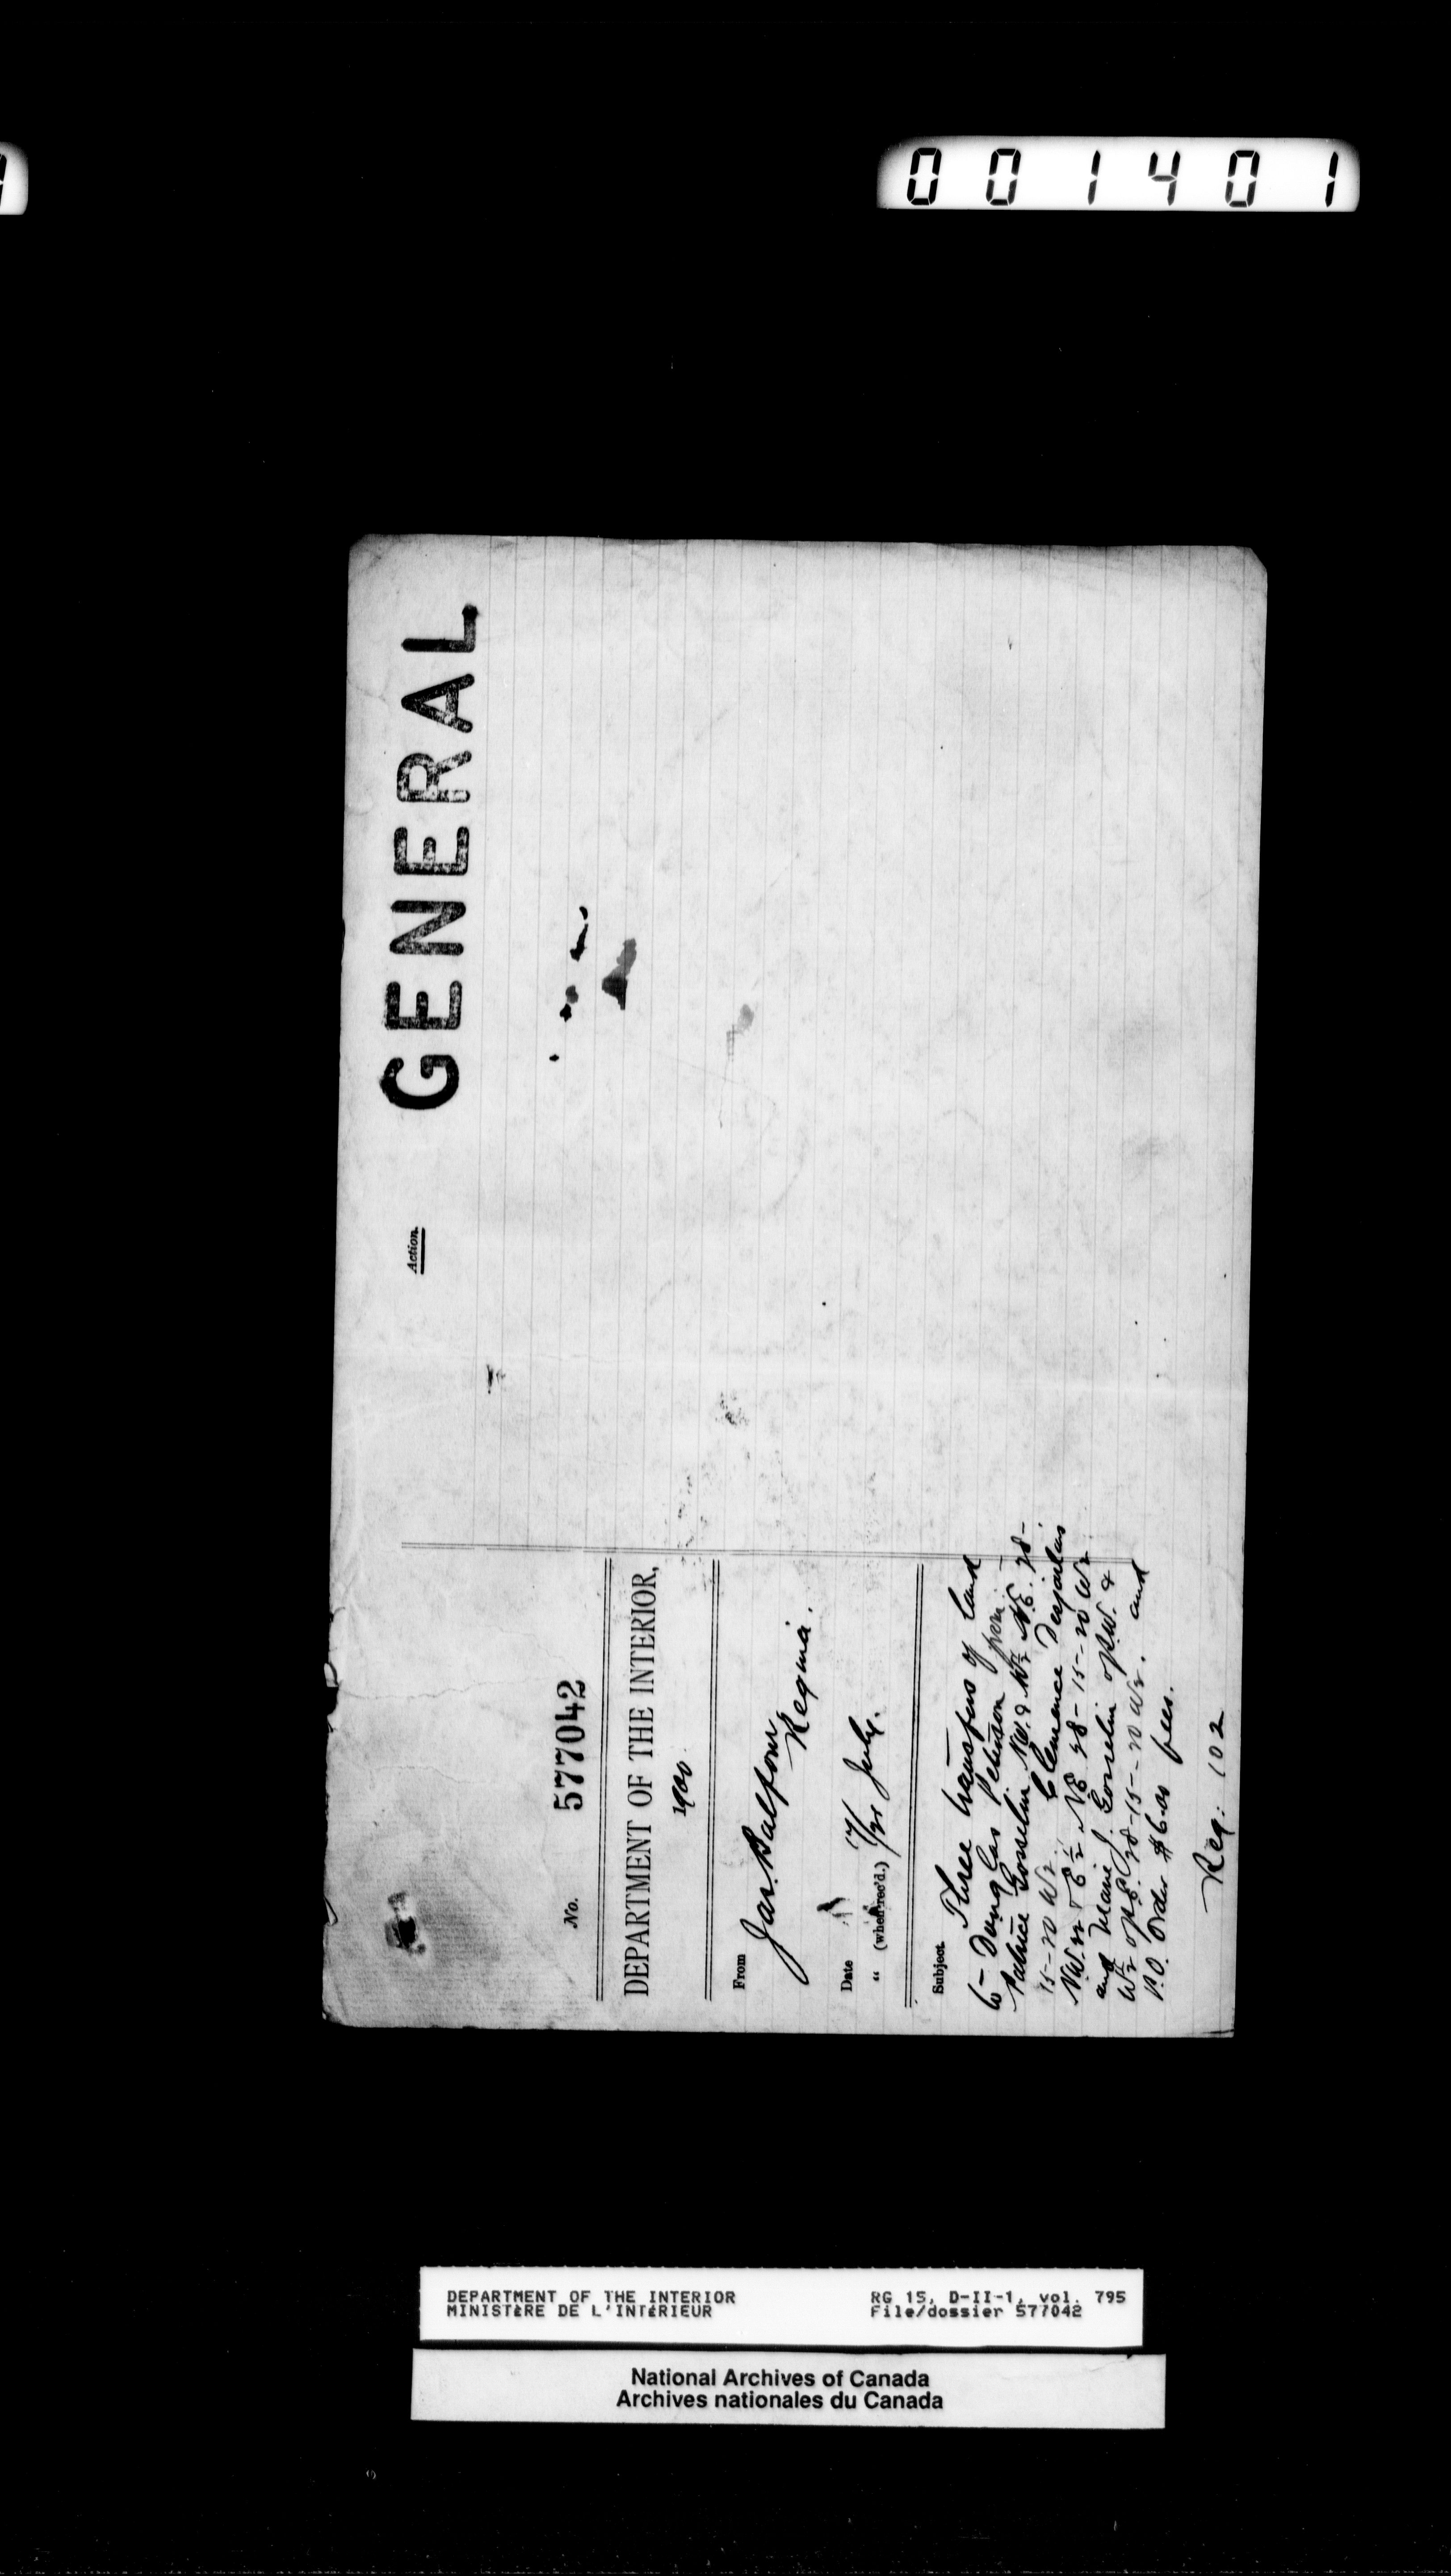 001401
Action.
GENERAL
No. 577042
DEPARTMENT OF THE INTERIOR,
1900
From
Jas. Balfour,
Regina.
Date 17
" (when rec'd.) /21 July.
Subject. Three transfers of land
to Douglas Peterson from
Patrice Gosselin
15-20 W2. Clemence Desjarlais
NE 28-15-20 W2
and Marie J. Gosselin
28-15-20 W2. and
P.O. Order $6.00 fees.
Reg. 102
DEPARTMENT OF THE INTERIOR
MINISTÈRE DE L'INTÉRIEUR
RG 15, D-II-1, vol. 795
File/dossier 577042
National Archives of Canada
Archives nationales du Canada